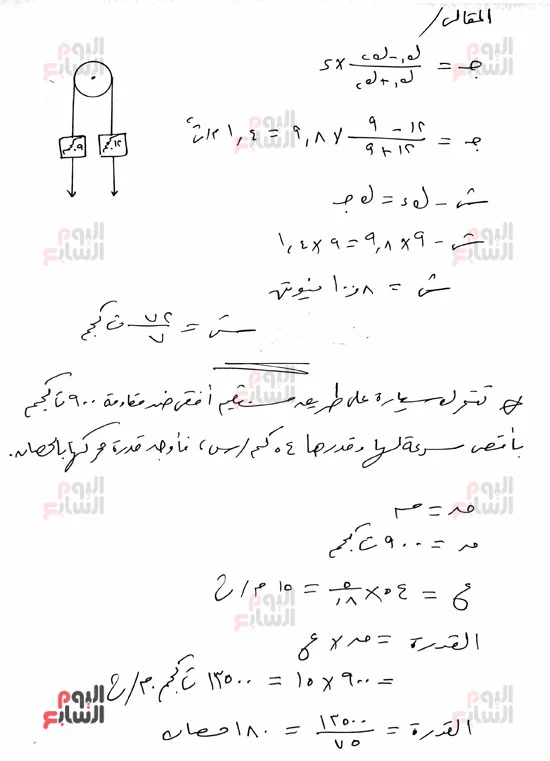 المقال /
جـ = (ك١ - ك٢) / (ك١ + ك٢) × ء
جـ = (١٢ - ٩) / (١٢ + ٩) × ٩,٨ = ١,٤ م/ث٢
٩ كجم ١٢ كجم
ش - ك ء = ك جـ
ش - ٩ × ٩,٨ = ٩ × ١,٤
ش = ١٠٠,٨ نيوتن
ش = ٧٢/٧ ث كجم
تتحرك سيارة على طريق مستقيم أفقى ضد مقاومة ٩٠٠ ث كجم
بأقصى سرعة لها وقدرها ٥٤ كم/س، فأوجد قدرة محركها بالحصان.
م = ٩٠٠ ث كجم
ع = ٥٤ × ٥/١٨ = ١٥ م/ث
القدرة = × ع
= ٩٠٠ × ١٥ = ١٣٥٠٠ ث كجم.م/ث
القدرة = ١٣٥٠٠/٧٥ = ١٨٠ حصان
اليوم السابع